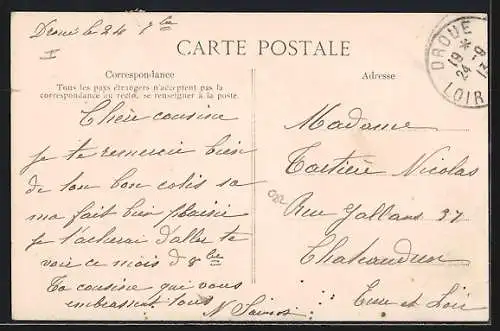 Droué le 24 7bre
I
CARTE POSTALE
Correspondance
Tous les pays étrangers n'acceptent pas la
correspondance au recto, se renseigner à la poste.
Adresse
DROUÉ
19
24
LOIR
Chère cousine
Je te remercie bien
de ton bon colis sa
ma fait bien plaisir
Je d'aller te
voir ce mois d 8bre
Ta cousine qui vous
embrassent tous
N
Madame
Nicolas
Rue Gallans 37
Chateaudun
Eure et Loir